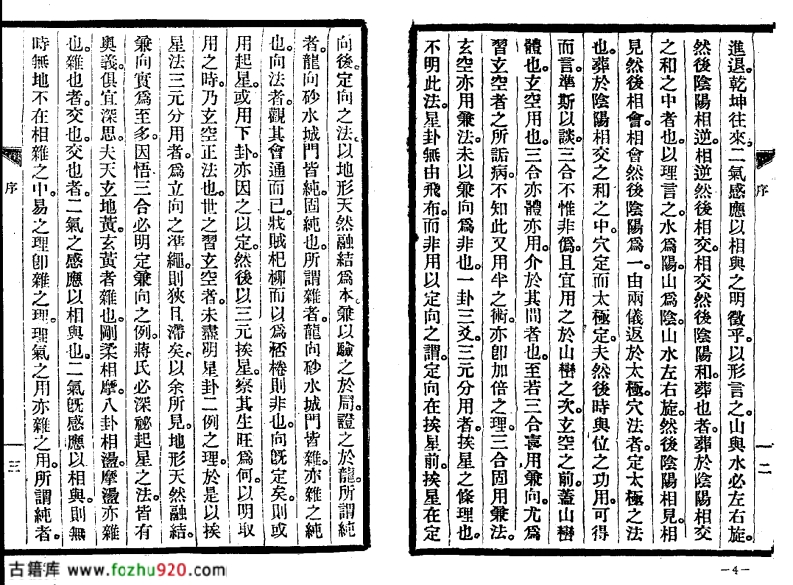 進退。乾坤往來。二氣感應以相與之明徵乎。以形言之。山與水必左右旋。
然後陰陽相逆。相逆然後相交。相交然後陰陽和。葬也者。葬於陰陽相交
之和之中者也。以理言之。水爲陽。山爲陰。山水左右旋。然後陰陽相見。相
見然後相會。相會然後陰陽爲一。由兩儀返於太極。穴法者。定太極之法
也。葬於陰陽相交之和之中。穴定而太極定。夫然後時與位之功用。可得
而言。準斯以談。三合不惟非僞。且宜用之於山巒之次。玄空之前。蓋山巒
體也。玄空用也。三合亦體亦用。介於其間者也。至若三合喜用兼向。尤爲
習玄空者之所詬病。不知此又用半之術。亦卽加倍之理。三合固用兼法。
玄空亦用兼法。未以兼向爲非也。一卦三爻。三元分用者。挨星之條理也。
不明此法。星卦無由飛布。而非用以定向之謂。定向在挨星前。挨星在定
序
二
—4—
向後。定向之法。以地形天然融結爲本。兼以驗之於局。證之於龍。所謂純
者。龍向砂水城門皆純固純也。所謂雜者。龍向砂水城門皆雜。亦雜之純
也。向法者。觀其會通而已。戕賊杞柳而以爲桮棬則非也。向旣定矣。則或
用起星。或用下卦。亦因之以定。然後以三元挨星。察其生旺爲何。以明取
用之時。乃玄空正法也。世之習玄空者。未盡明星卦二例之理。於是以挨
星法三元分用者。爲立向之準繩。則狹且滯矣。以余所見。地形天然融結。
兼向實爲至多。因悟三合必明定兼向之例。蔣氏必深祕起星之法。皆有
奧義。俱宜深思。夫天玄地黃。玄黃者雜也。剛柔相摩。八卦相盪。摩盪亦雜
也。雜也者交也。交也者。二氣之感應以相與也。二氣旣感應以相與。則無
時無地不在相雜之中。易之理卽雜之理。理氣之用亦雜之用。所謂純者。
序
三
古籍库 www.fozhu920.com